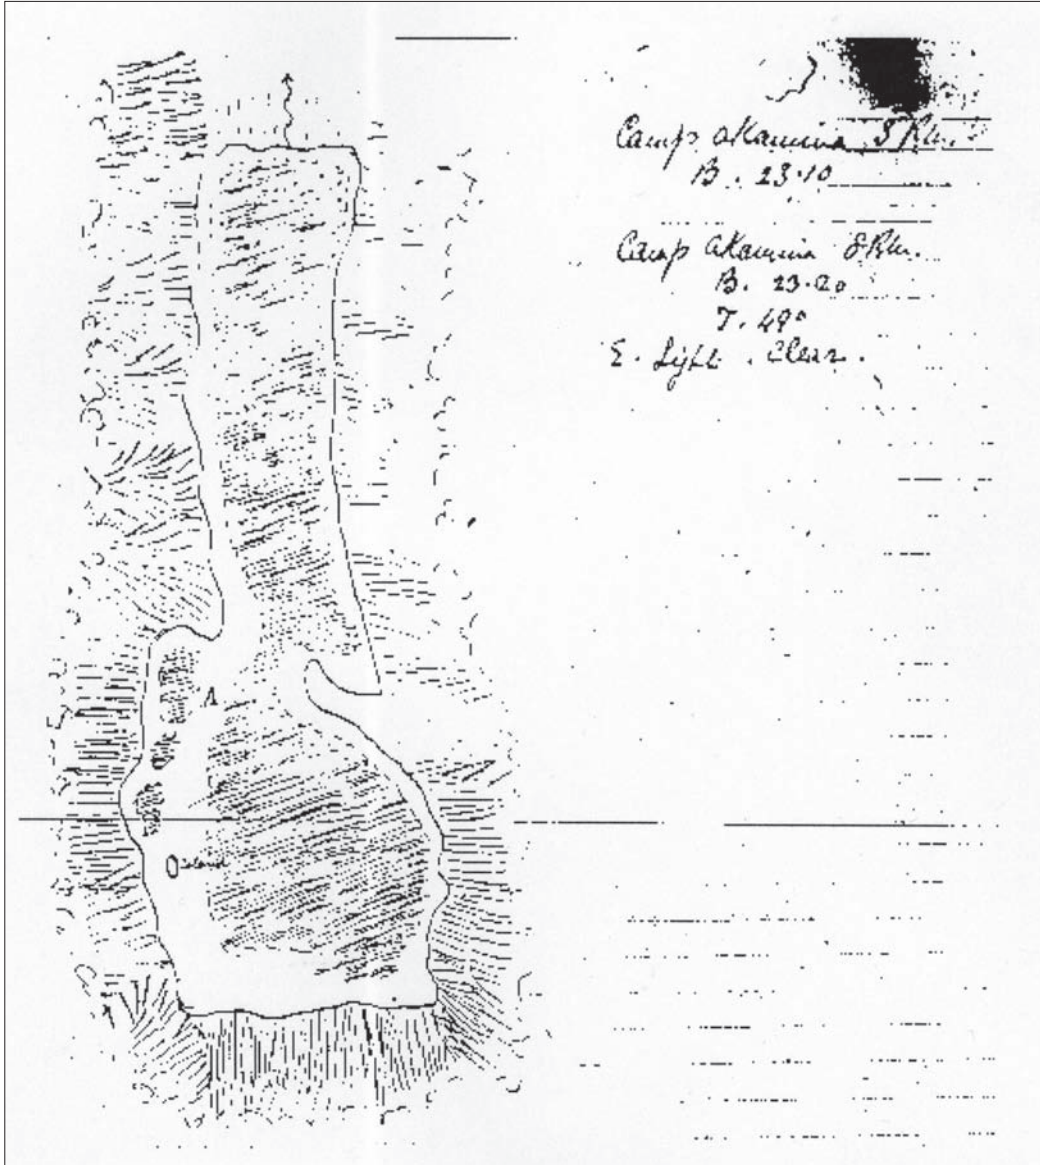 Camp akamina 8
B. 23.10
Camp akamina 8
B. 23.20
T. 49°
E. Light. Clear.
Island